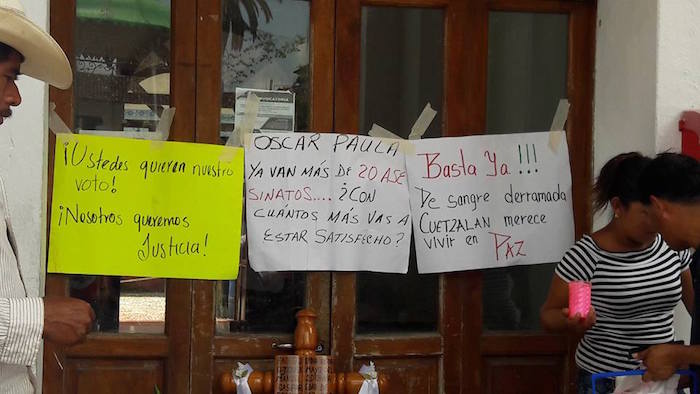 ¡Ustedes quieren nuestro
voto!
¡Nosotros queremos
Justicia!
OSCAR PAULA
YA VAN MÁS DE 20 ASE
SINATOS.... ¿CON
CUÁNTOS MÁS VAS A
ESTAR SATISFECHO?
Basta Ya!!!
De sangre derramada
CUETZALAN merece
vivir en PAZ